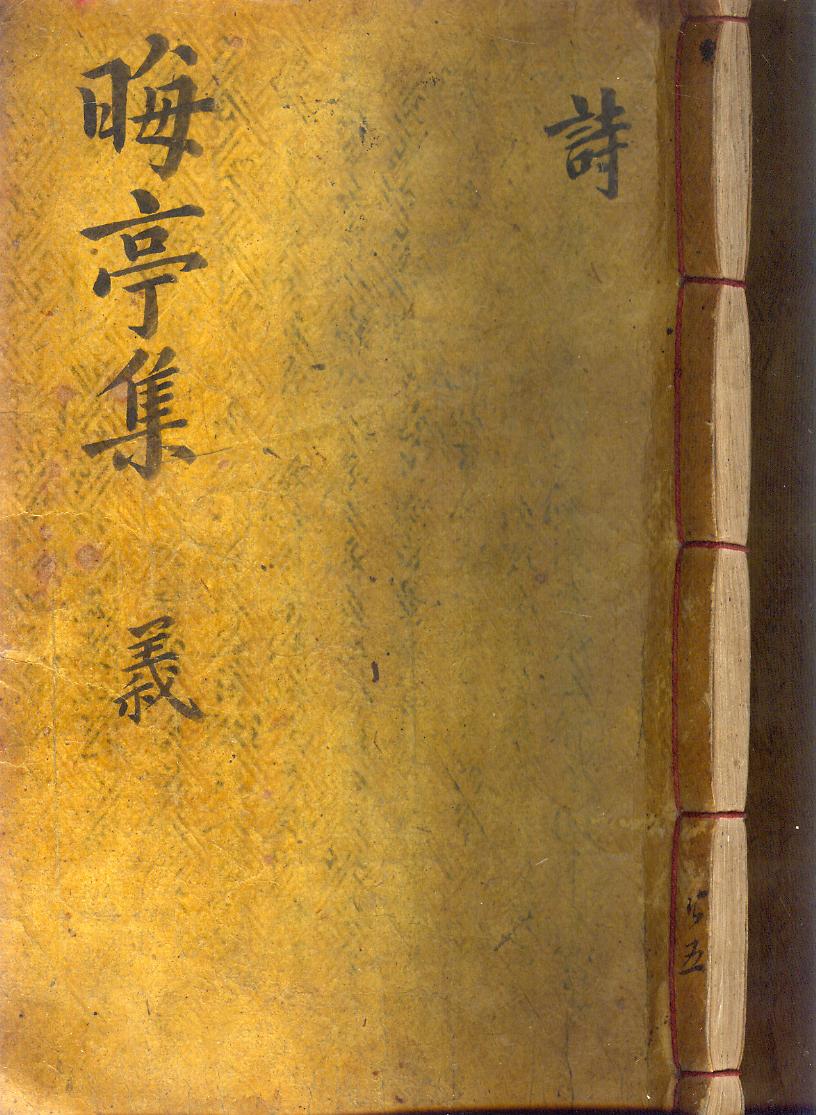 共五
詩
晦亭集 義